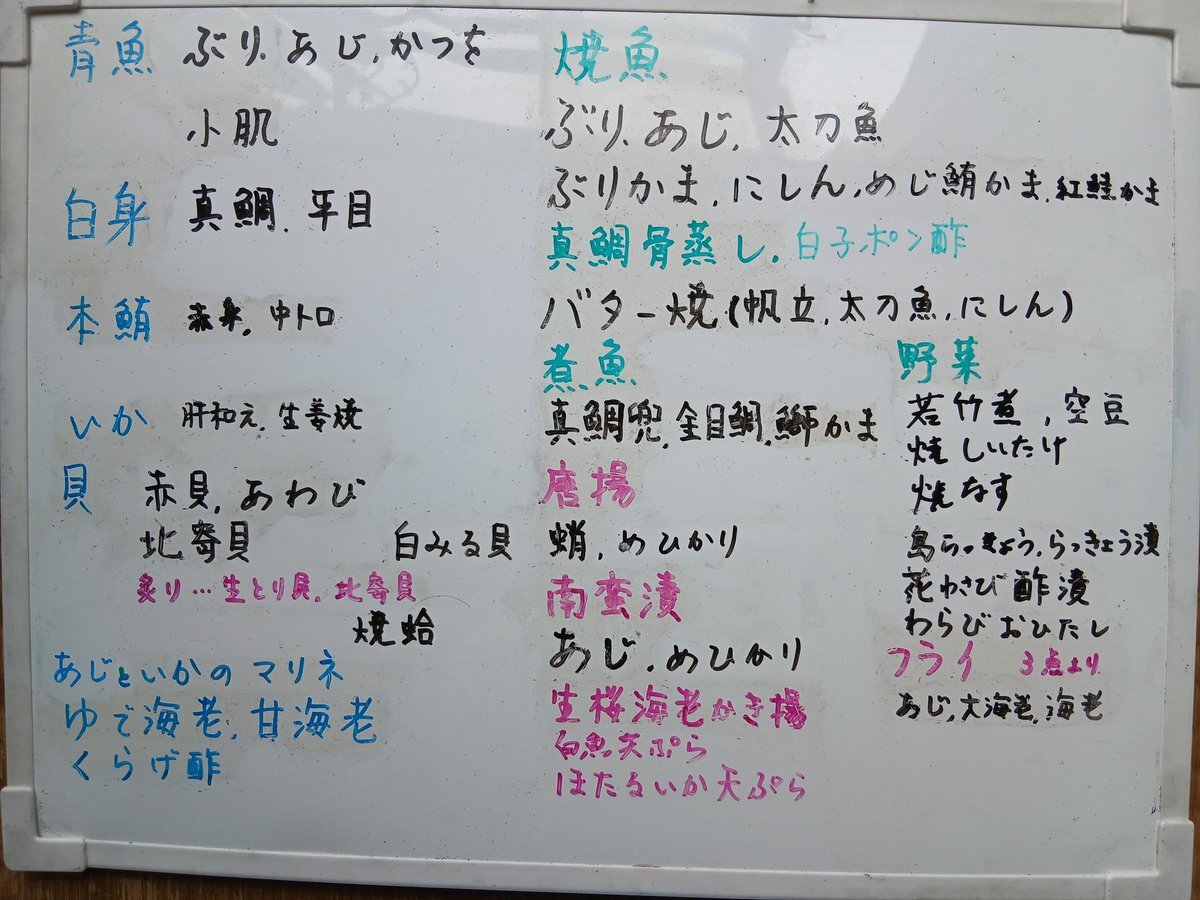 青魚 ぶり、あじ、かつを
小肌
白身 真鯛、平目
本鮪 赤身、中トロ
いか 肝和え、生姜焼
貝 赤貝、あわび
北寄貝 白みる貝
炙り…生とり貝、北寄貝
焼蛤
あじといかのマリネ
ゆで海老、甘海老
くらげ酢
焼魚
ぶり、あじ、太刀魚
ぶりかま、にしん、めじ鮪かま、紅鮭かま
真鯛骨蒸し、白子ポン酢
バター焼(帆立、太刀魚、にしん)
煮魚
真鯛兜、金目鯛、鰤かま
唐揚
蛸、めひかり
南蛮漬
あじ、めひかり
生桜海老かき揚
白魚天ぷら
ほたるいか天ぷら
野菜
若竹煮、空豆
焼しいたけ
焼なす
島らっきょう、らっきょう漬
花わさび酢漬
わらびおひたし
フライ 3点より
あじ、大海老、海老